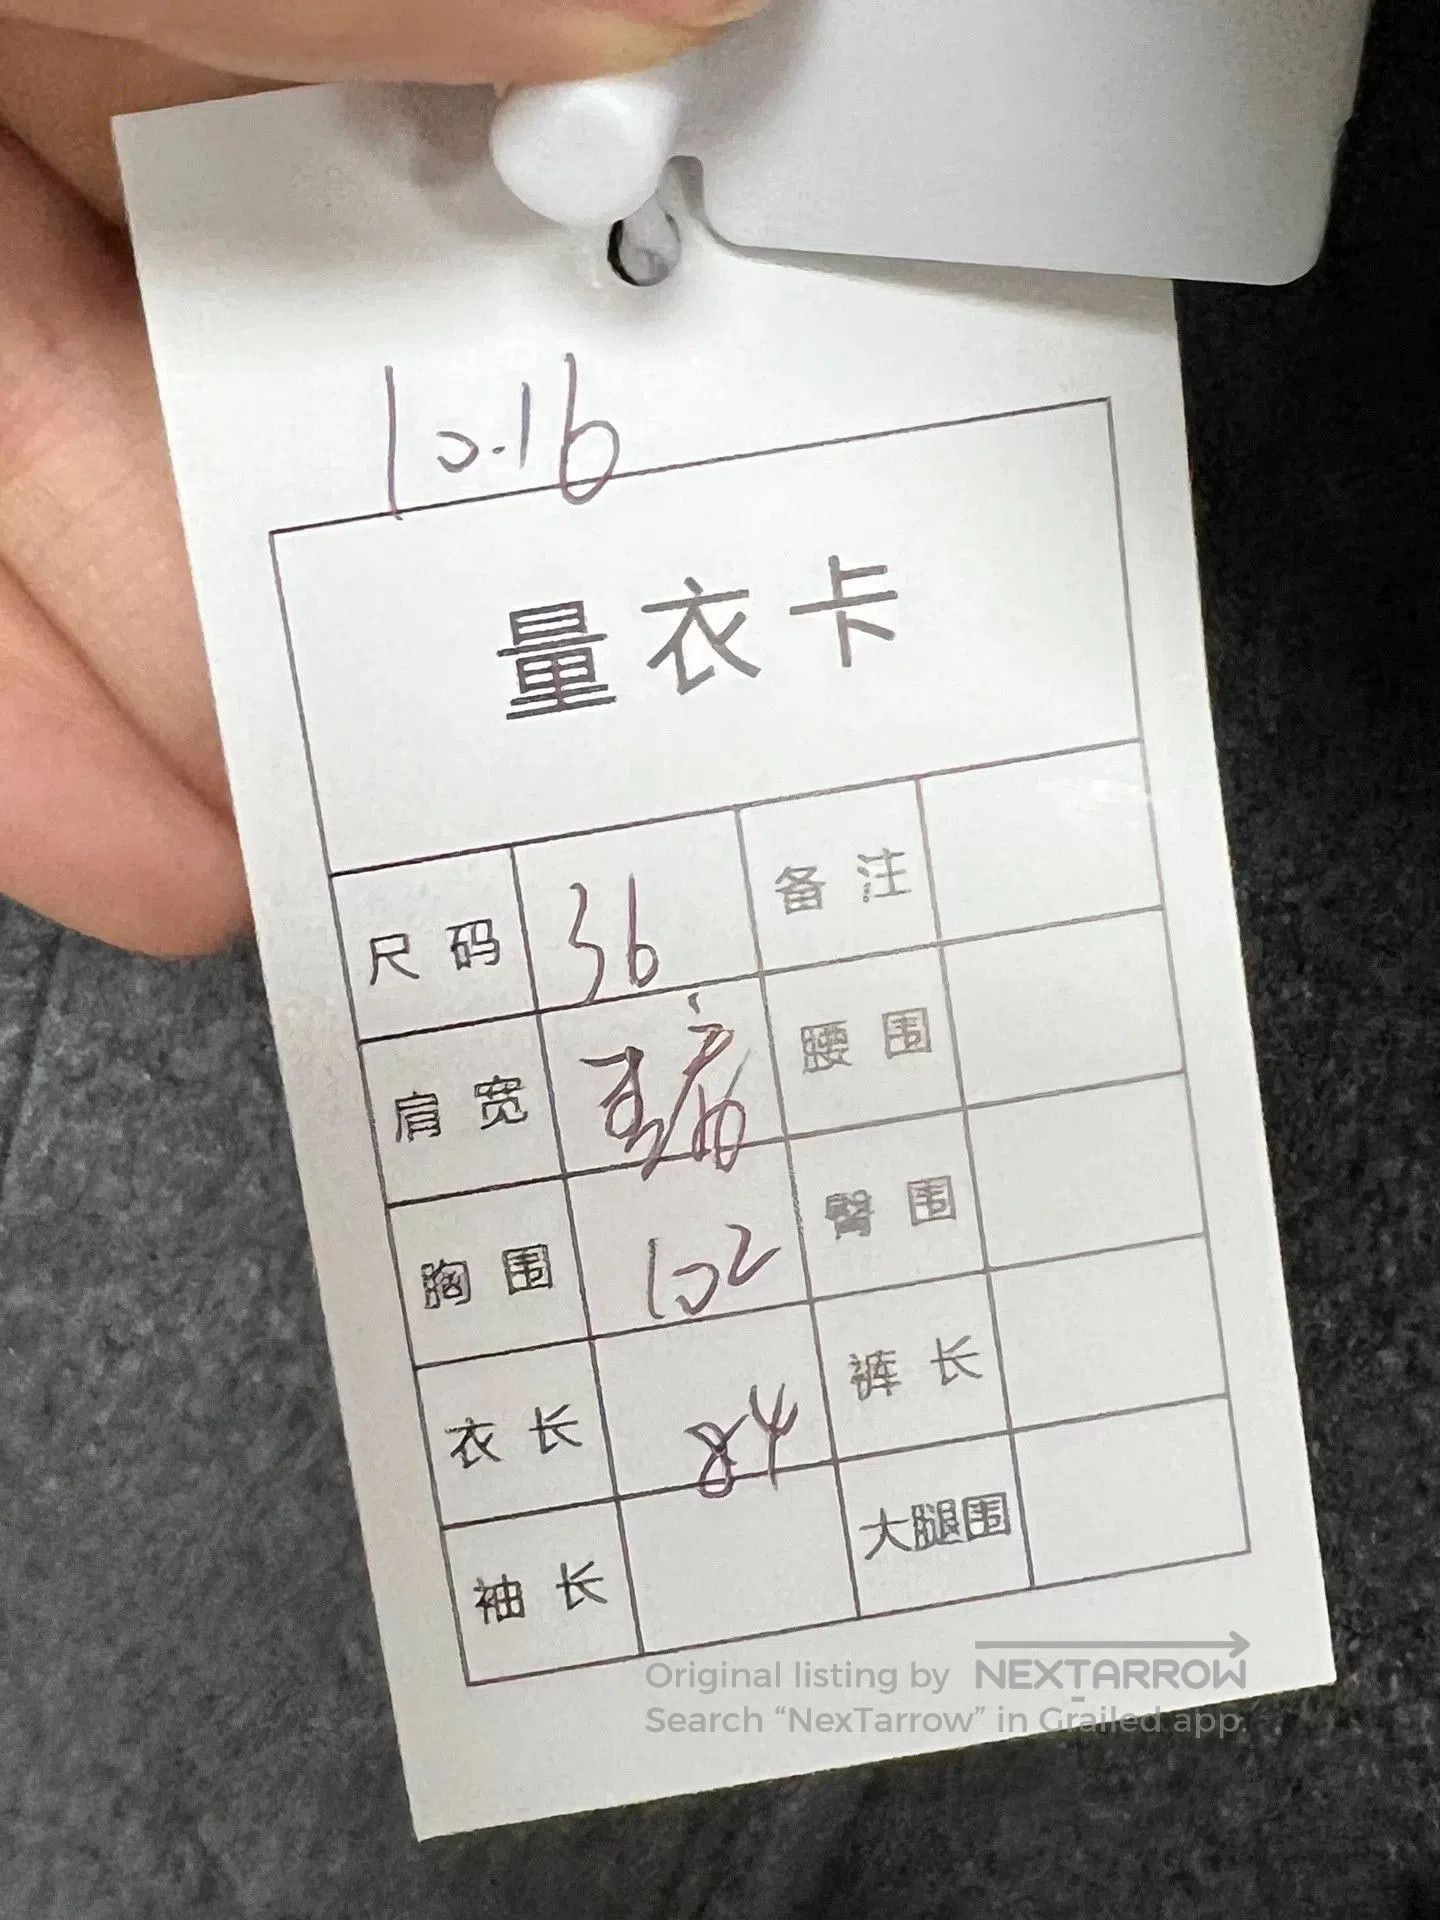 10.16
量衣卡
尺码 36 备注
肩宽 腰围
胸围 102 臀围
衣长 84 裤长
袖长 大腿围
Original listing by NEXTARROW
Search “NexTarrow” in Grailed app.